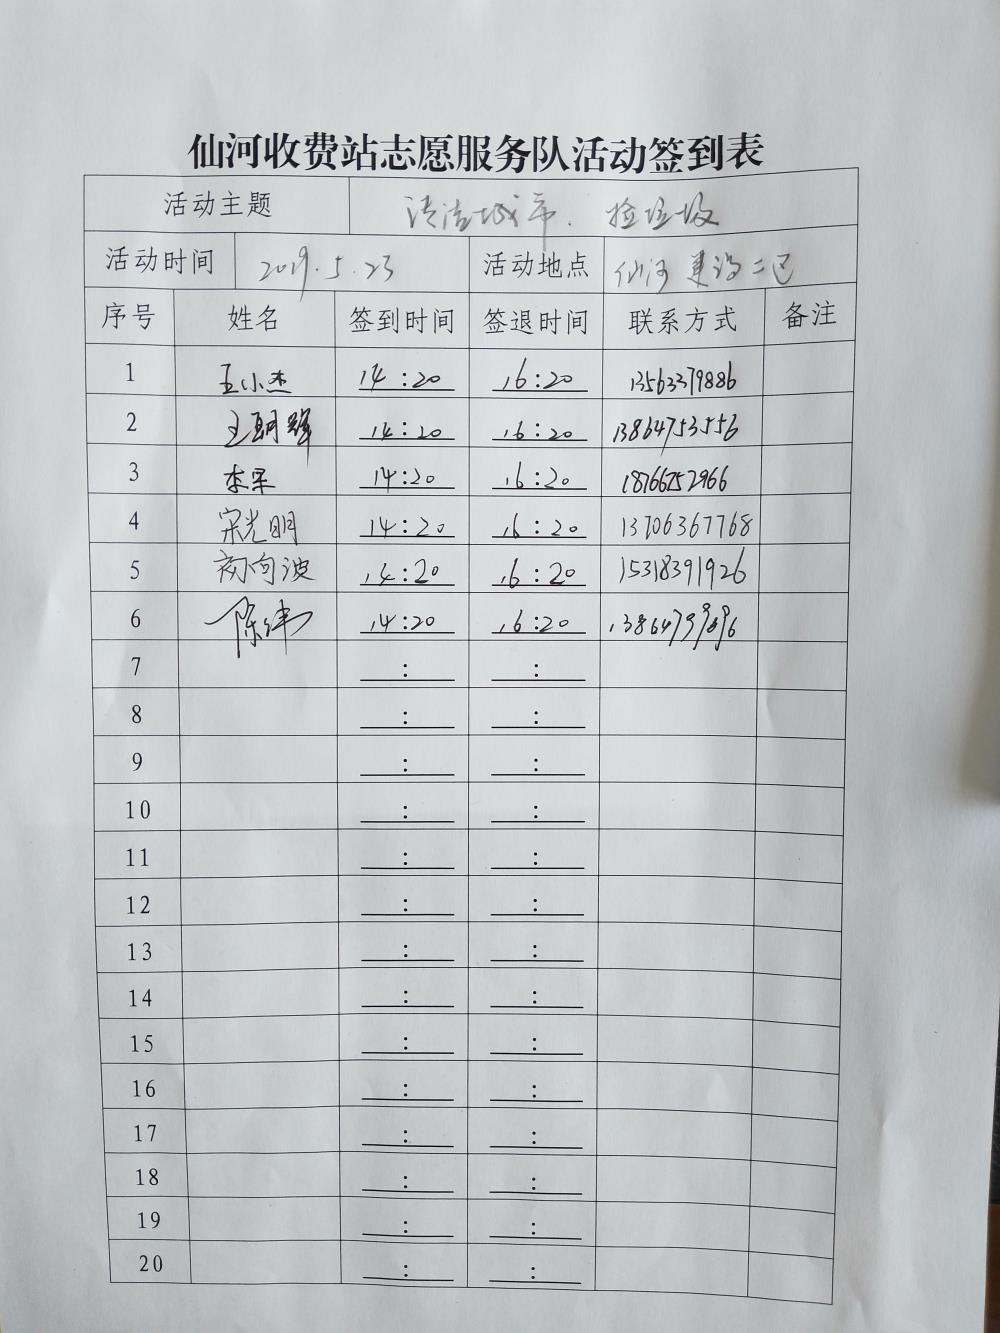 仙河收费站志愿服务队活动签到表
活动主题 清洁城市、捡垃圾
活动时间 2019.5.23 活动地点 仙河建设二区
序号 姓名 签到时间 签退时间 联系方式 备注
1 王小杰 14:20 16:20 13563379886
2 王朝辉 14:20 16:20 13864753556
3 李军 14:20 16:20 18766752966
4 宋光明 14:20 16:20 13706367768
5 初向波 14:20 16:20 15318391926
6 陈伟 14:20 16:20
7 : :
8 : :
9 : :
10 : :
11 : :
12 : :
13 : :
14 : :
15 : :
16 : :
17 : :
18 : :
19 : :
20 : :